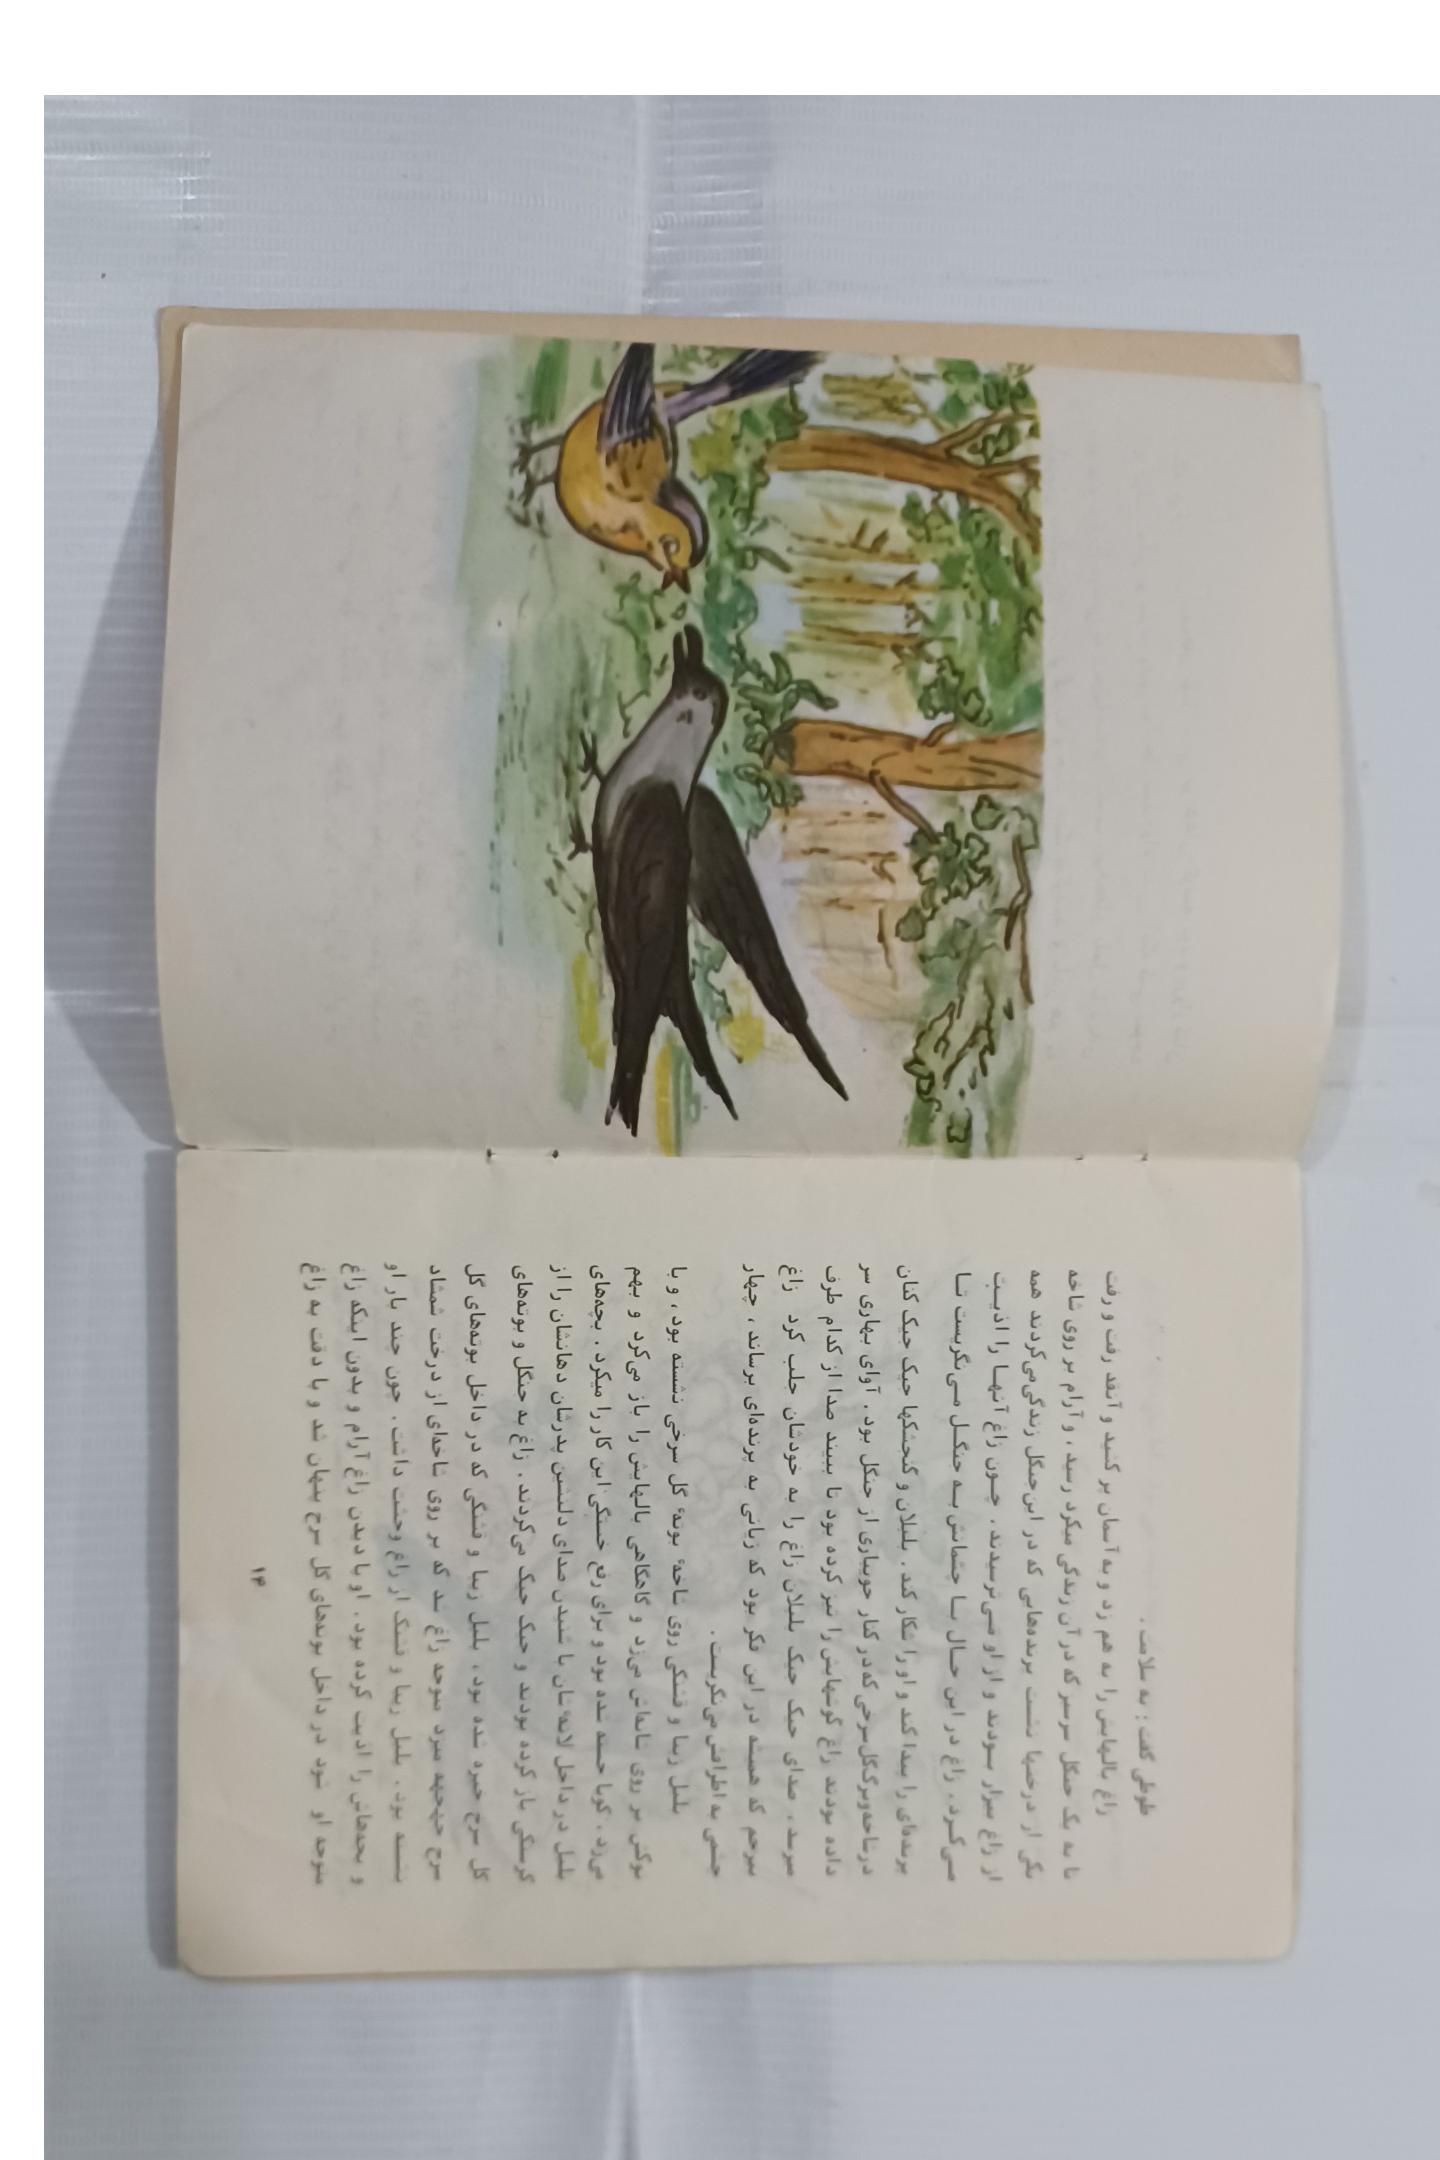 طوطی گفت: به سلامت.
زاغ بالهایش را به هم زد و به آسمان پر کشید و آنقد رفت و رفت
تا به یک جنگل سرسبز که در آن زندگی میکرد رسید، و آرام بر روی شاخه
یکی از درختها نشست پرنده‌هایی که در این جنگل زندگی می‌کردند همه
از زاغ بیزار بودند و از او می‌ترسیدند. چون زاغ آنها را اذیت
می‌کرد. زاغ در این حال با چشمانش به جنگل می‌نگریست تا
پرنده‌ای را پیدا کند و او را شکار کند. بلبلان و گنجشکها جیک جیک کنان
در شاخه و برگ گل سرخی که در کنار جویباری از جنگل بود. آوای بهاری سر
داده بودند زاغ گوشهایش را تیز کرده بود تا ببیند صدا از کدام طرف
میرسد. صدای جیک جیک بلبلان زاغ را به خودشان جلب کرد زاغ
بیرحم که همیشه در این فکر بود که زیانی به پرنده‌ای برساند، چهار
چشمی به اطرافش می‌نگریست.
بلبل زیبا و قشنگی روی شاخهٔ بوتهٔ گل سرخی نشسته بود، و با
نوکش بر روی شانه‌اش می‌زد و گاهگاهی بالهایش را باز می‌کرد و بهم
می‌زد. گویا خسته شده بود و برای رفع خستگی این کار را میکرد. بچه‌های
بلبل در داخل لانه‌شان با شنیدن صدای دلنشین پدرشان دهانشان را از
گرسنگی باز کرده بودند و جیک جیک می‌کردند. زاغ به جنگل و بوته‌های
گل سرخ خیره شده بود، بلبل زیبا و قشنگی که در داخل بوته‌های گل
سرخ چهچهه میزد متوجه زاغ شد که بر روی شاخه‌ای از درخت شمشاد
نشسته بود. بلبل زیبا و قشنگ از زاغ وحشت داشت. چون چند بار او
و بچه‌هاش را اذیت کرده بود. او با دیدن زاغ آرام و بدون اینکه زاغ
متوجه او شود در داخل بوته‌های گل سرخ پنهان شد و با دقت به زاغ
۱۴